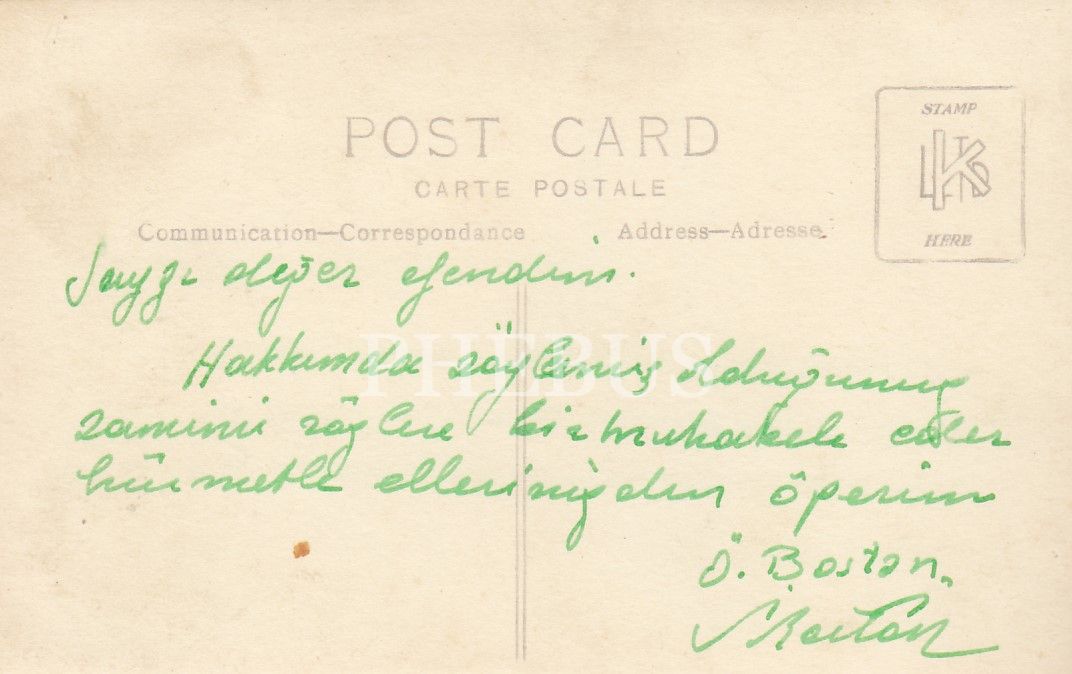 POST CARD
CARTE POSTALE
Communication—Correspondance
Address—Adresse.
STAMP
LTD
K
HERE
PHEBUS
Saygı değer efendim.
Hakkımda söylemiş olduğunuz
samimi söylere bir eder
hürmetle ellerinizden öperim
Ö. Bostan